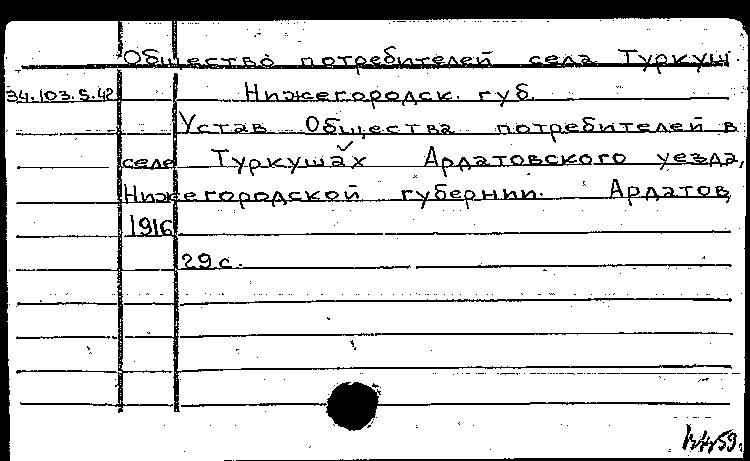 Общество потребителей села Туркуш.
34.103.5.42
Нижегородск. губ.
Устав Общества потребителей в
селе Туркушах Ардатовского уезда,
Нижегородской губернии. Ардатов,
1916
29 с.